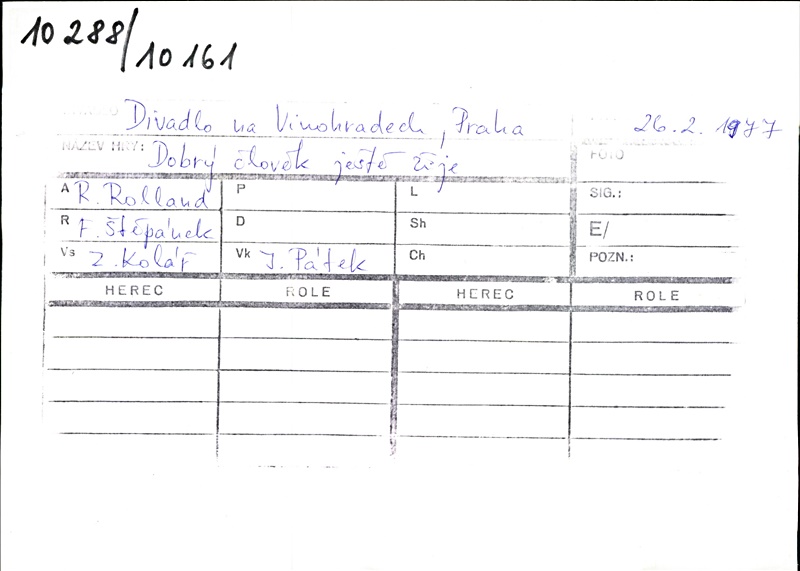 10 288/10 161
Divadlo na Vinohradech, Praha 26.2. 1977
NÁZEV HRY: Dobrý člověk ještě žije FOTO
A R. Rolland P L SIG.:
R F. Štěpánek D Sh E/
Vs Z. Kolář Vk J. Pátek Ch POZN.:
HEREC ROLE HEREC ROLE